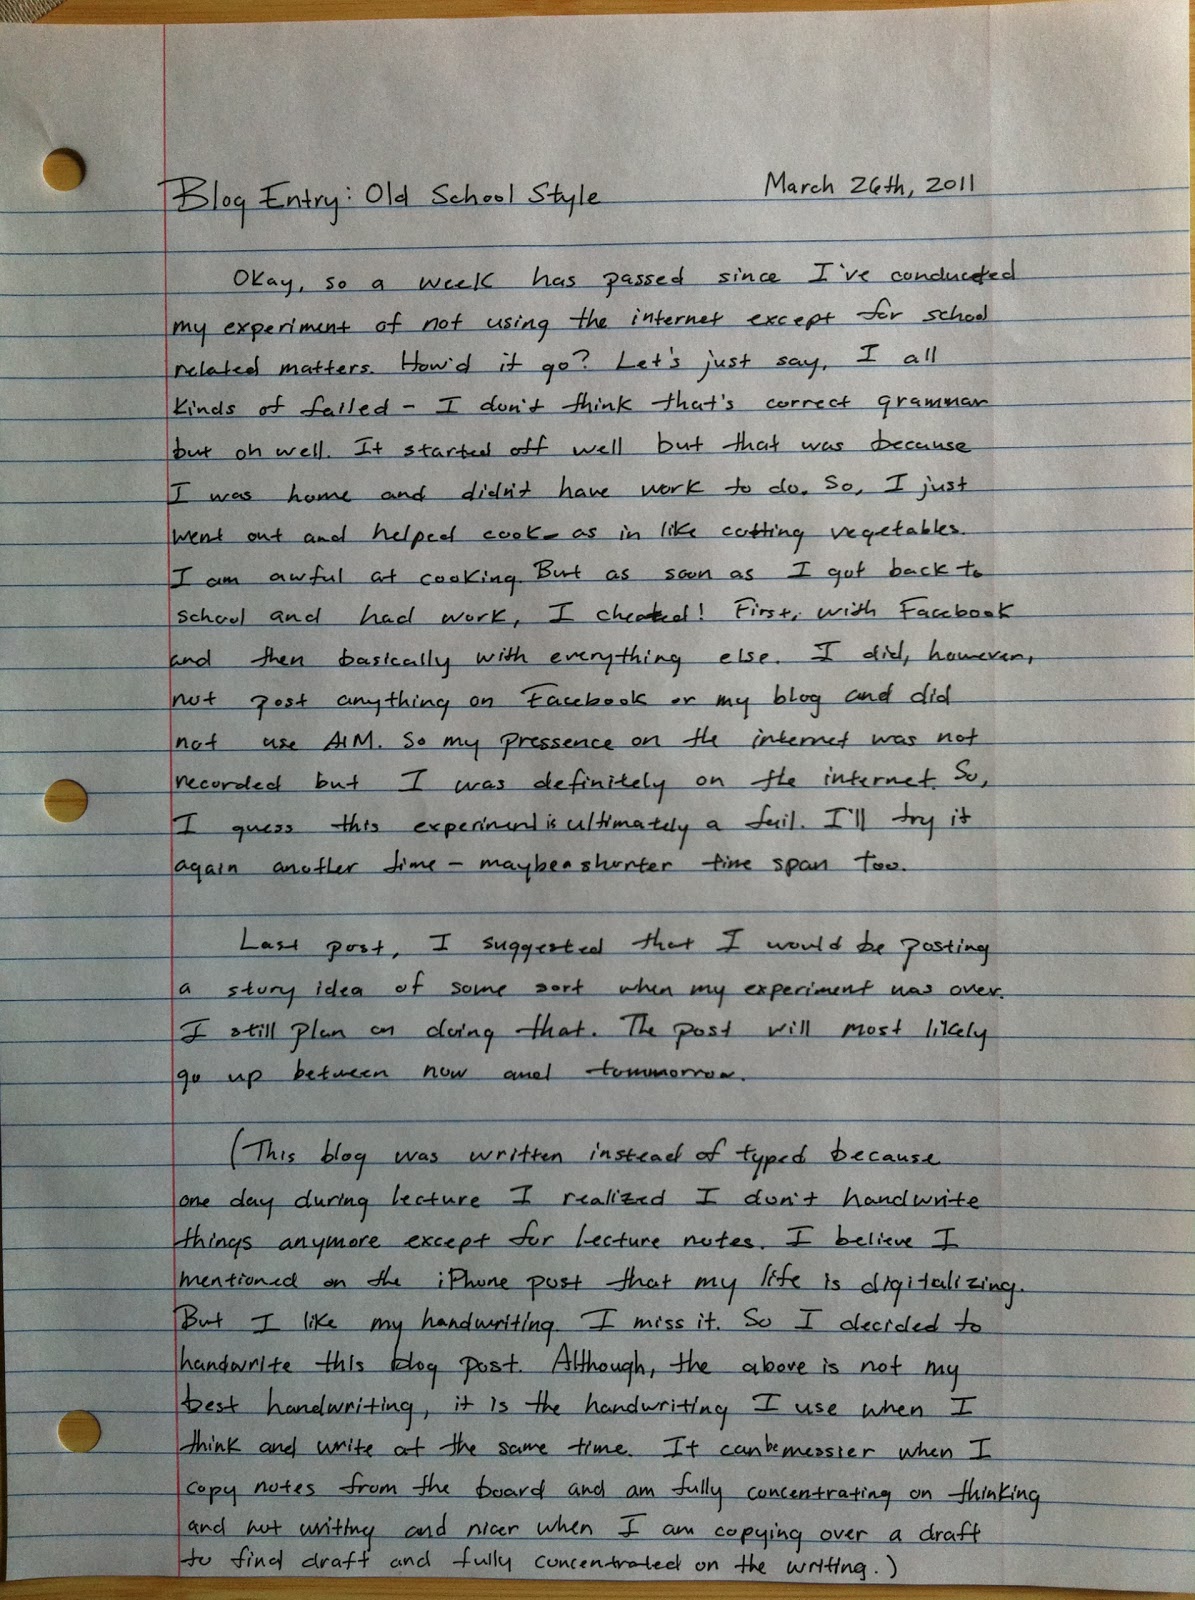 Blog Entry: Old School Style
March 26th, 2011
Okay, so a week has passed since I've conducted
my experiment of not using the internet except for school
related matters. How'd it go? Let's just say, I all
kinds of failed - I don't think that's correct grammar
but oh well. It started off well but that was because
I was home and didn't have work to do. So, I just
went out and helped cook - as in like cutting vegetables.
I am awful at cooking. But as soon as I got back to
school and had work, I cheated! First, with Facebook
and then basically with everything else. I did, however,
not post anything on Facebook or my blog and did
not use AIM. So my pressence on the internet was not
recorded but I was definitely on the internet. So,
I guess this experiment is ultimately a fail. I'll try it
again another time - maybe a shorter time span too.
Last post, I suggested that I would be posting
a story idea of some sort when my experiment was over.
I still plan on doing that. The post will most likely
go up between now and tommorrow.
(This blog was written instead of typed because
one day during lecture I realized I don't handwrite
things anymore except for lecture notes. I believe I
mentioned on the iPhone post that my life is digitalizing.
But I like my handwriting. I miss it. So I decided to
handwrite this blog post. Although, the above is not my
best handwriting, it is the handwriting I use when I
think and write at the same time. It can be messier when I
copy notes from the board and am fully concentrating on thinking
and not writing and nicer when I am copying over a draft
to find draft and fully concentrated on the writing.)